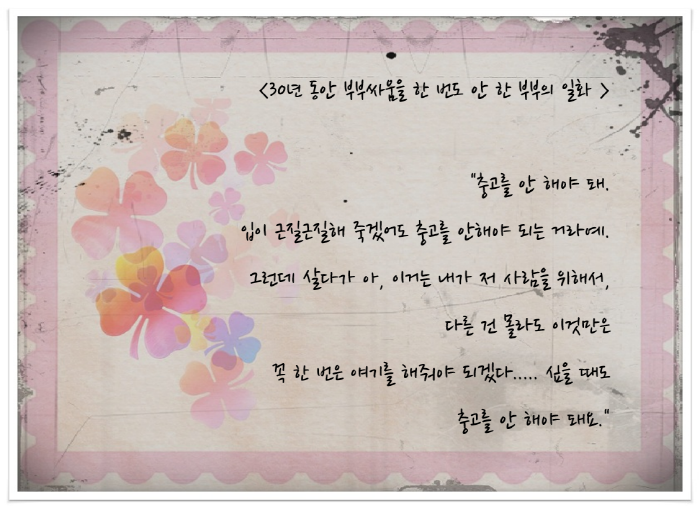 <30년 동안 부부싸움을 한 번도 안 한 부부의 일화 >
"충고를 안 해야 돼.
입이 근질근질해 죽겠어도 충고를 안해야 되는 거라예.
그런데 살다가 아, 이거는 내가 저 사람을 위해서,
다른 건 몰라도 이것만은
꼭 한 번은 얘기를 해줘야 되겠다..... 싶을 때도
충고를 안 해야 돼요."